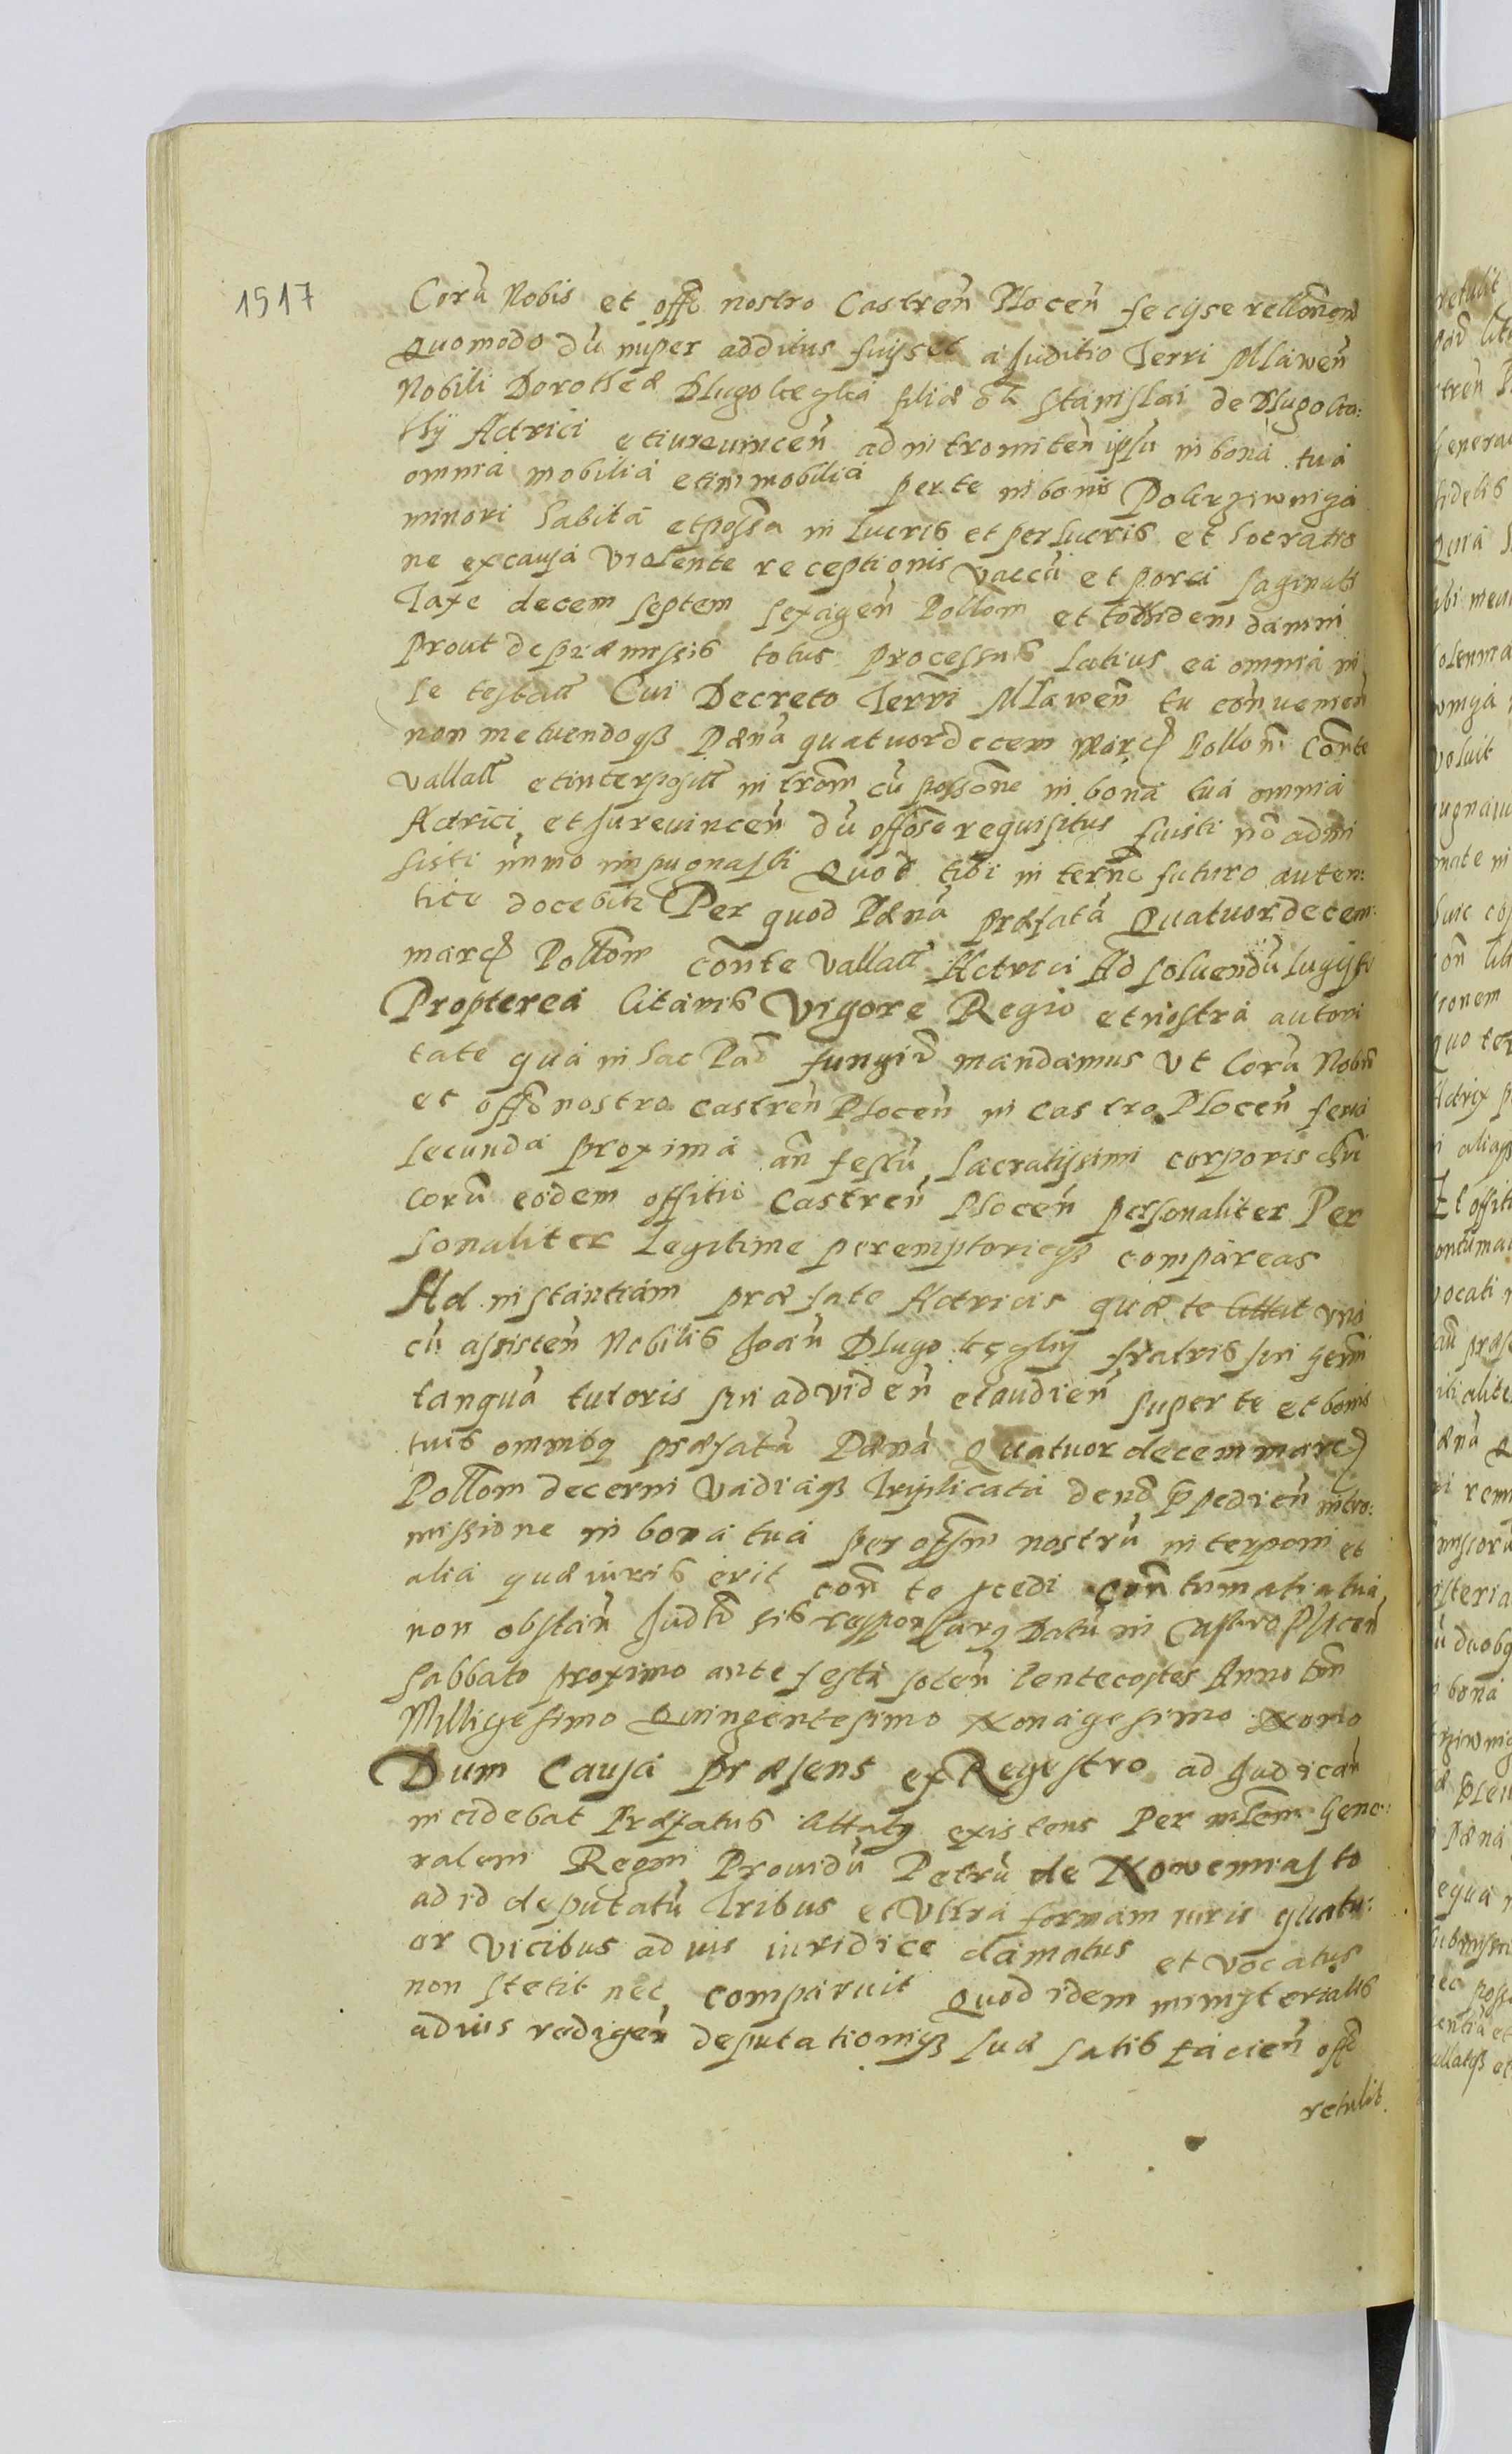 1517
Corã Nobis et offo nostro Castreñ Plocen̄ fecisse rellõnem
Quomodo dũ nuper additus fuisset a Juditio Terri Mlawen̄
Nobili Dorotheæ Dlugoleczka filiæ ol̄ Stanislai de Dlugoleç:
kij Actrici et iurevincen̄ ad intromiten̄ ipsã in bona tua
omnia mobilia et immobilia per te in bonis
minori habita et possa in lucris et perlucris et
ne ex causa violente receptionis vaccæ et porci saginati
Taxe decem septem sexagen̄ Pollom et tottidem damni
prout de præmissis totus processus latius ea omnia in
se testatt Cui Decreto Terri Mlawen̄ tu con̄uenien̄
non metuendoqz Pænã quatuordecem marcz Pollõni Conte
vallatt et interpositt introm̄ cũ possõne in bona tua omnia
Actrici et Jurevincen̄ dũ offose requisitus fuisti nõ admi
sisti immo impugnasti Quod tibi in terno futuro auten:
tice docebitr Per quod Pænã præfatã Quatuordecem
marcz Pollom conte vallatt Actrici Ad soluendũ
Propterea citamus Vigore Regio et nostra autori
tate qua in hac Pað fungiṽ mandamus Vt Corã Nobis
et offo nostro castren̄ Plocen̄ in Castro Plocen̄ feria
secunda proxima an̄ festũ sacratissimi corporis chri
corã eodem offitio Castren̄ Plocen̄ personaliter Per
sonaliter Legitime peremptorieqz compareas
Ad instantiam præfate Actricis quæ te cittat vna
cũ assisten̄ Nobilis Joan̄ Dlugoleczkij fratris sui germ̄
tanquã tutoris sui ad viden̄ et audien̄ super te et bonis
tuis omnibqz præfatã Pænã Quatuordecem marcz
Pollom decerni Vadiaqz Triplicata denõ expedien̄ intro:
missione in bona tua per offm̄ nostrũ interponi et
alia quæ iuris erit con̄ te pcedi contumatia tua
non obstan̄ Judtr sis responsurqz Datũ in Castro Plocen̄
Sabbato proximo ante festa solen̄ Pentecostes Anno Dni
Milligesimo Quingentesimo Nonagesimo Nono
Dum Causa præsens ex Regestro ad Judican̄
incidebat Præfatus citatqz existens Per mlem Gene:
ralem Regni Prouidũ Petrũ de Nowemiasto
ad id deputatũ Tribus et Vltra formam iuris quatu:
or vicibus ad ius iuridice clamatus et vocatus
non stetit nec comparuit Quod idem ministerialis
ad ius redigen̄ deputationiqz suæ satis facien̄ offo
retulit.